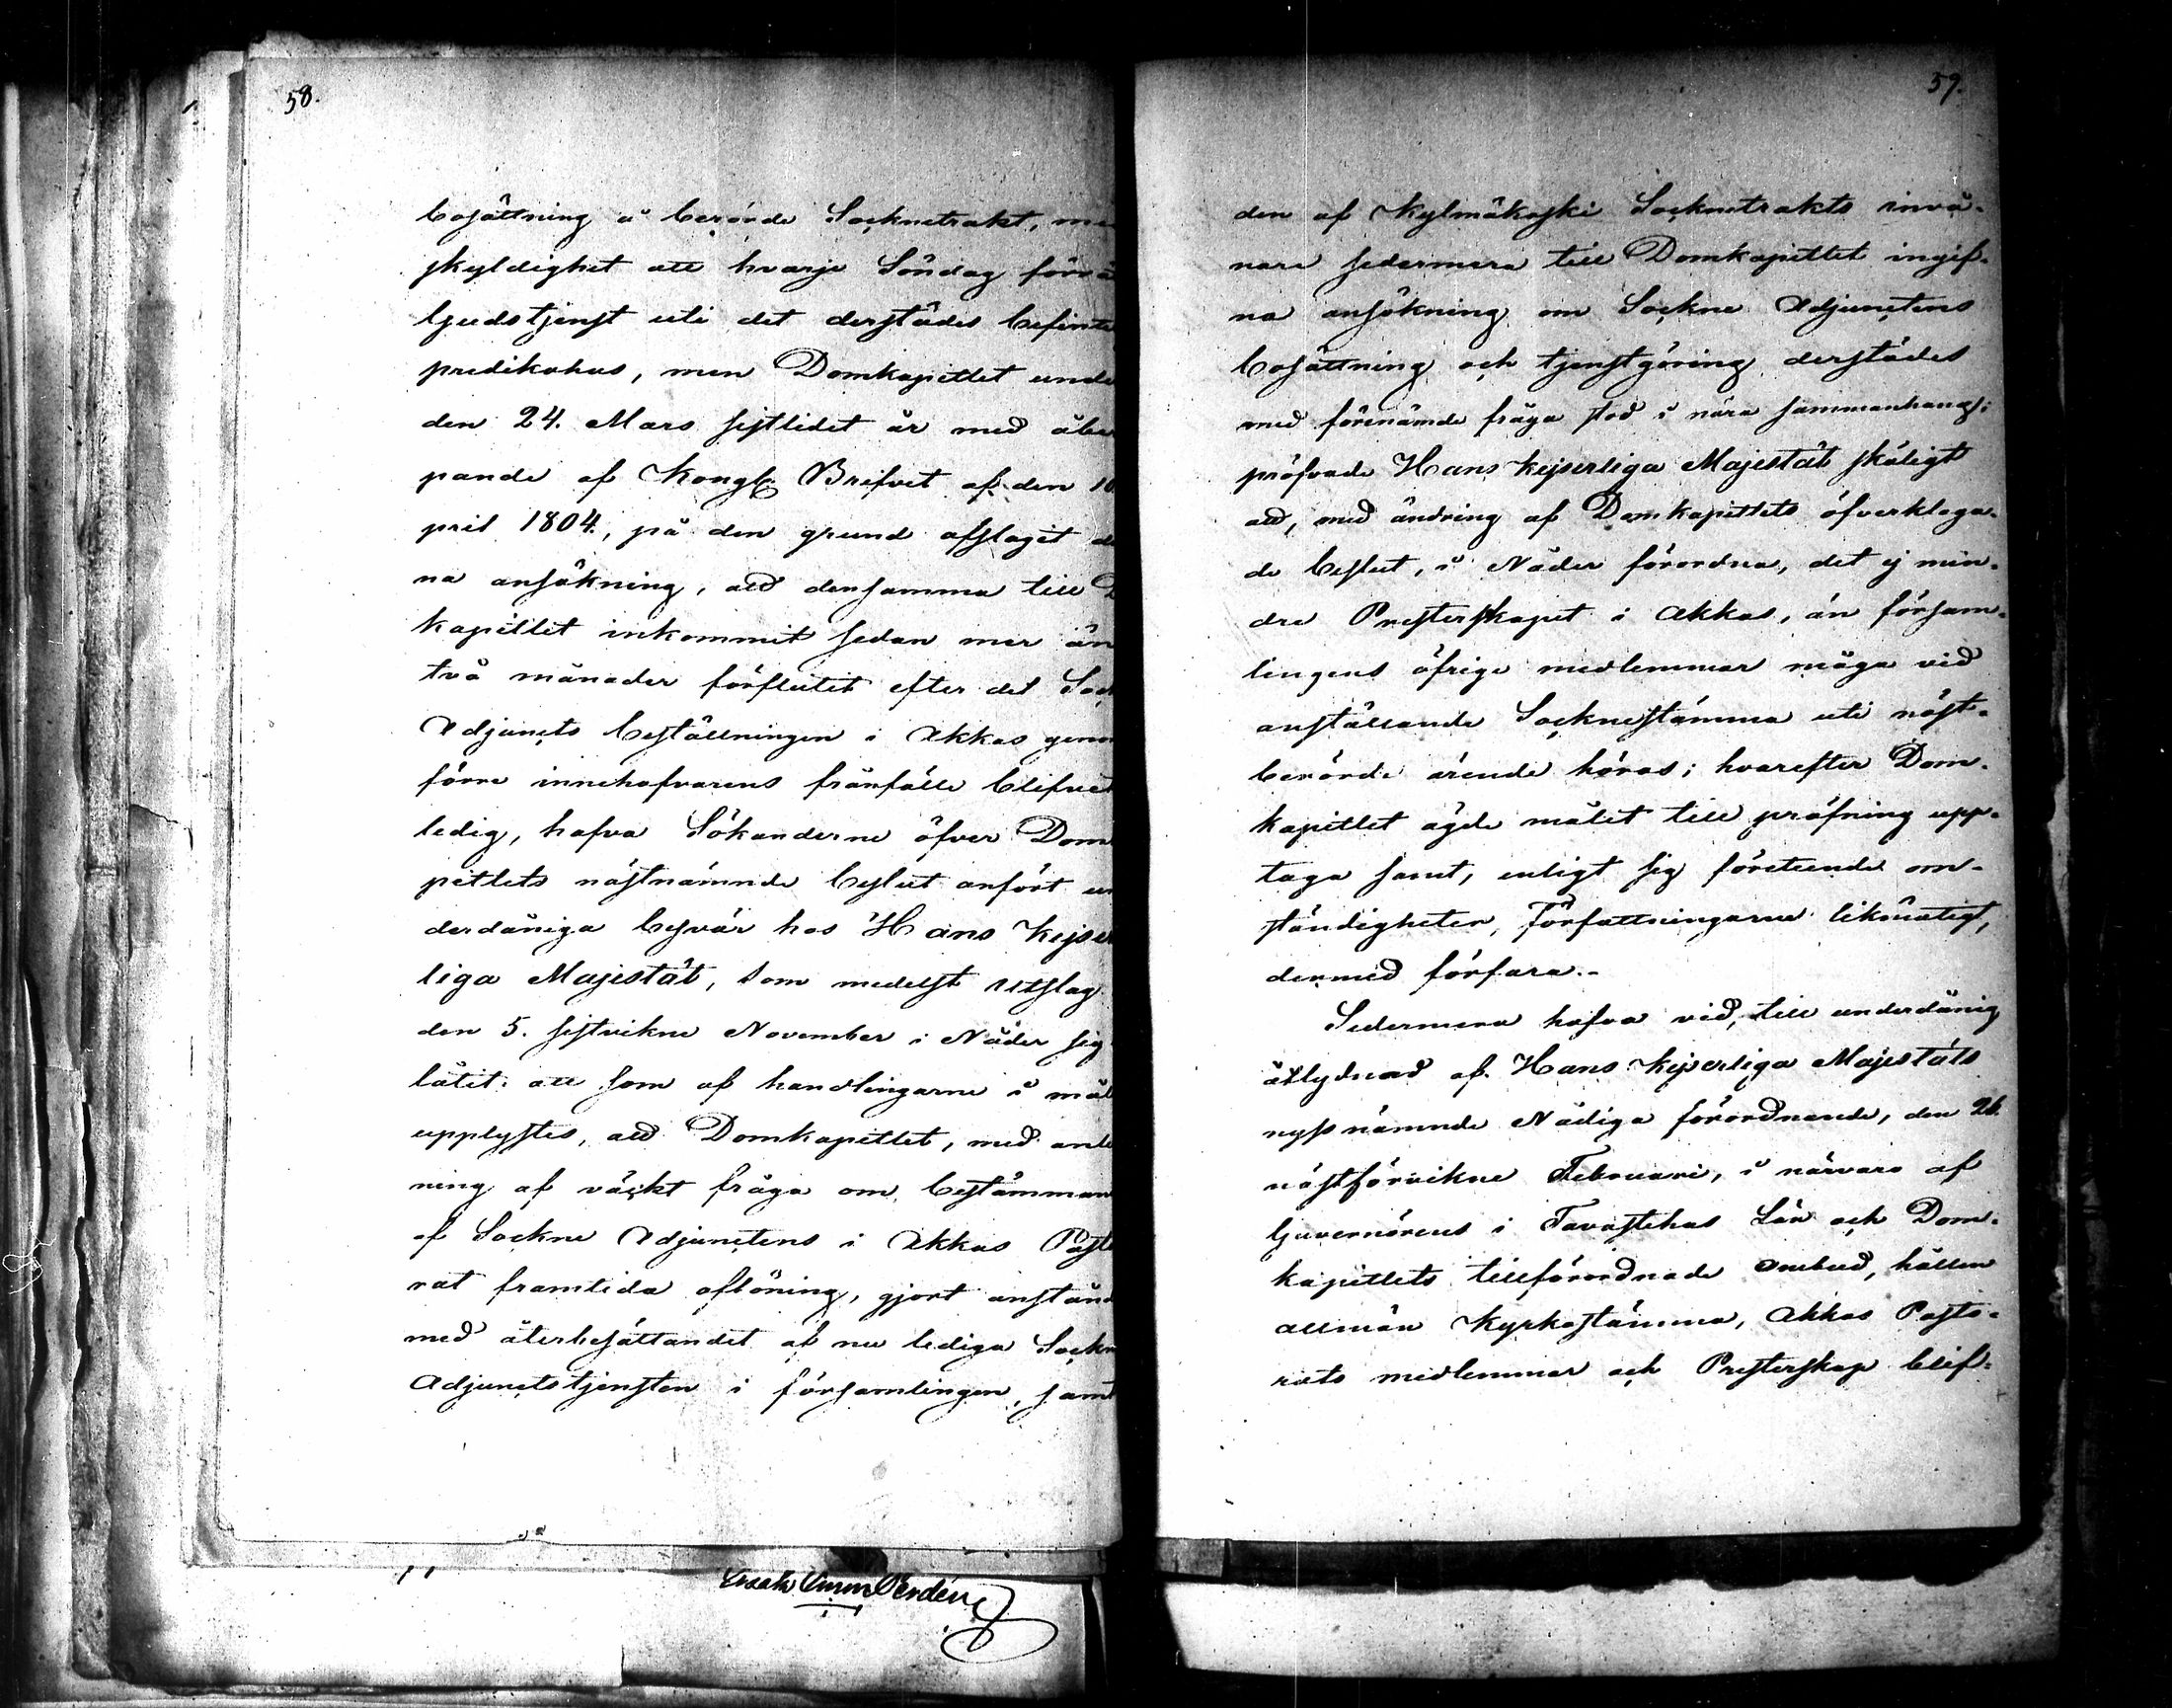 58.
bosättning å berörde Socknetrakt, me
skyldighet att hvarje Söndag förrä
Gudstjenst uti det derstädes befinte
predikohus, men Domkapitlet unde
den 24. Mars sistledit år med åbe
pande af Kongl. Brefvet af den 10
pril 1804., på den grund afslagit de
na ansökning, att densamma till D
kapitlet inkommit sedan mer än
två månader förflutit efter det Sock
Adjuncts beställningen i Akkas geno
förre innehafvarens frånfälle blifvit
ledig, hafva Sökanderne öfver Dom
pitlets nästnämnde beslut anfört un
derdåniga besvär hos Hans Kejser
liga Majestät, som medelst utslag
den 5. sistvikne November i Nåder sig
låtit: att som af handlingarne i mål
upplystes, att Domkapitlet, med anle
ning af väckt fråga om bestämman
af Sockne Adjunctens i Akkas Pasto
rat framtida aflöning, gjort anstånd
med återbesättandet af nu lediga Sockn
Adjunctstjensten i församlingen, samt
59.
den af Kylmäkoski Socknetrakts invå-
nare sedermera till Domkapitlet ingif-
na ansökning om Sockne Adjunctens
bosättning och tjenstgöring derstädes
med förenämde fråga stod i nära sammanhang;
pröfvade Hans Kejserliga Majestät skäligt
att, med ändring af Domkapitlets öfverklaga-
de beslut, i Nåder förordna, det ej min-
dre Presterskapet i Akkas, än försam-
lingens öfrige medlemmar måga vid
anställande Socknestämma uti näst-
berörde ärende höras; hvarefter Dom-
kapitlet ägde målet till pröfning upp-
taga samt, enligt sig företeende om-
ständigheter, Författningarne likmätigt,
dermed förfara.-
Sedermera hafva vid, till underdånig
åtlydnad af Hans Kejserliga Majestäts
nyss nämnde Nådiga förordnande, den 26.
nästförvikne Februari, i närvaro af
Guvernörens i Tavastehus Län och Dom-
kapitlets tillförordnade ombud, hållen
allmän Kyrkostämma, Akkas Pasto-
rats medlemmar och Presterskap blif-